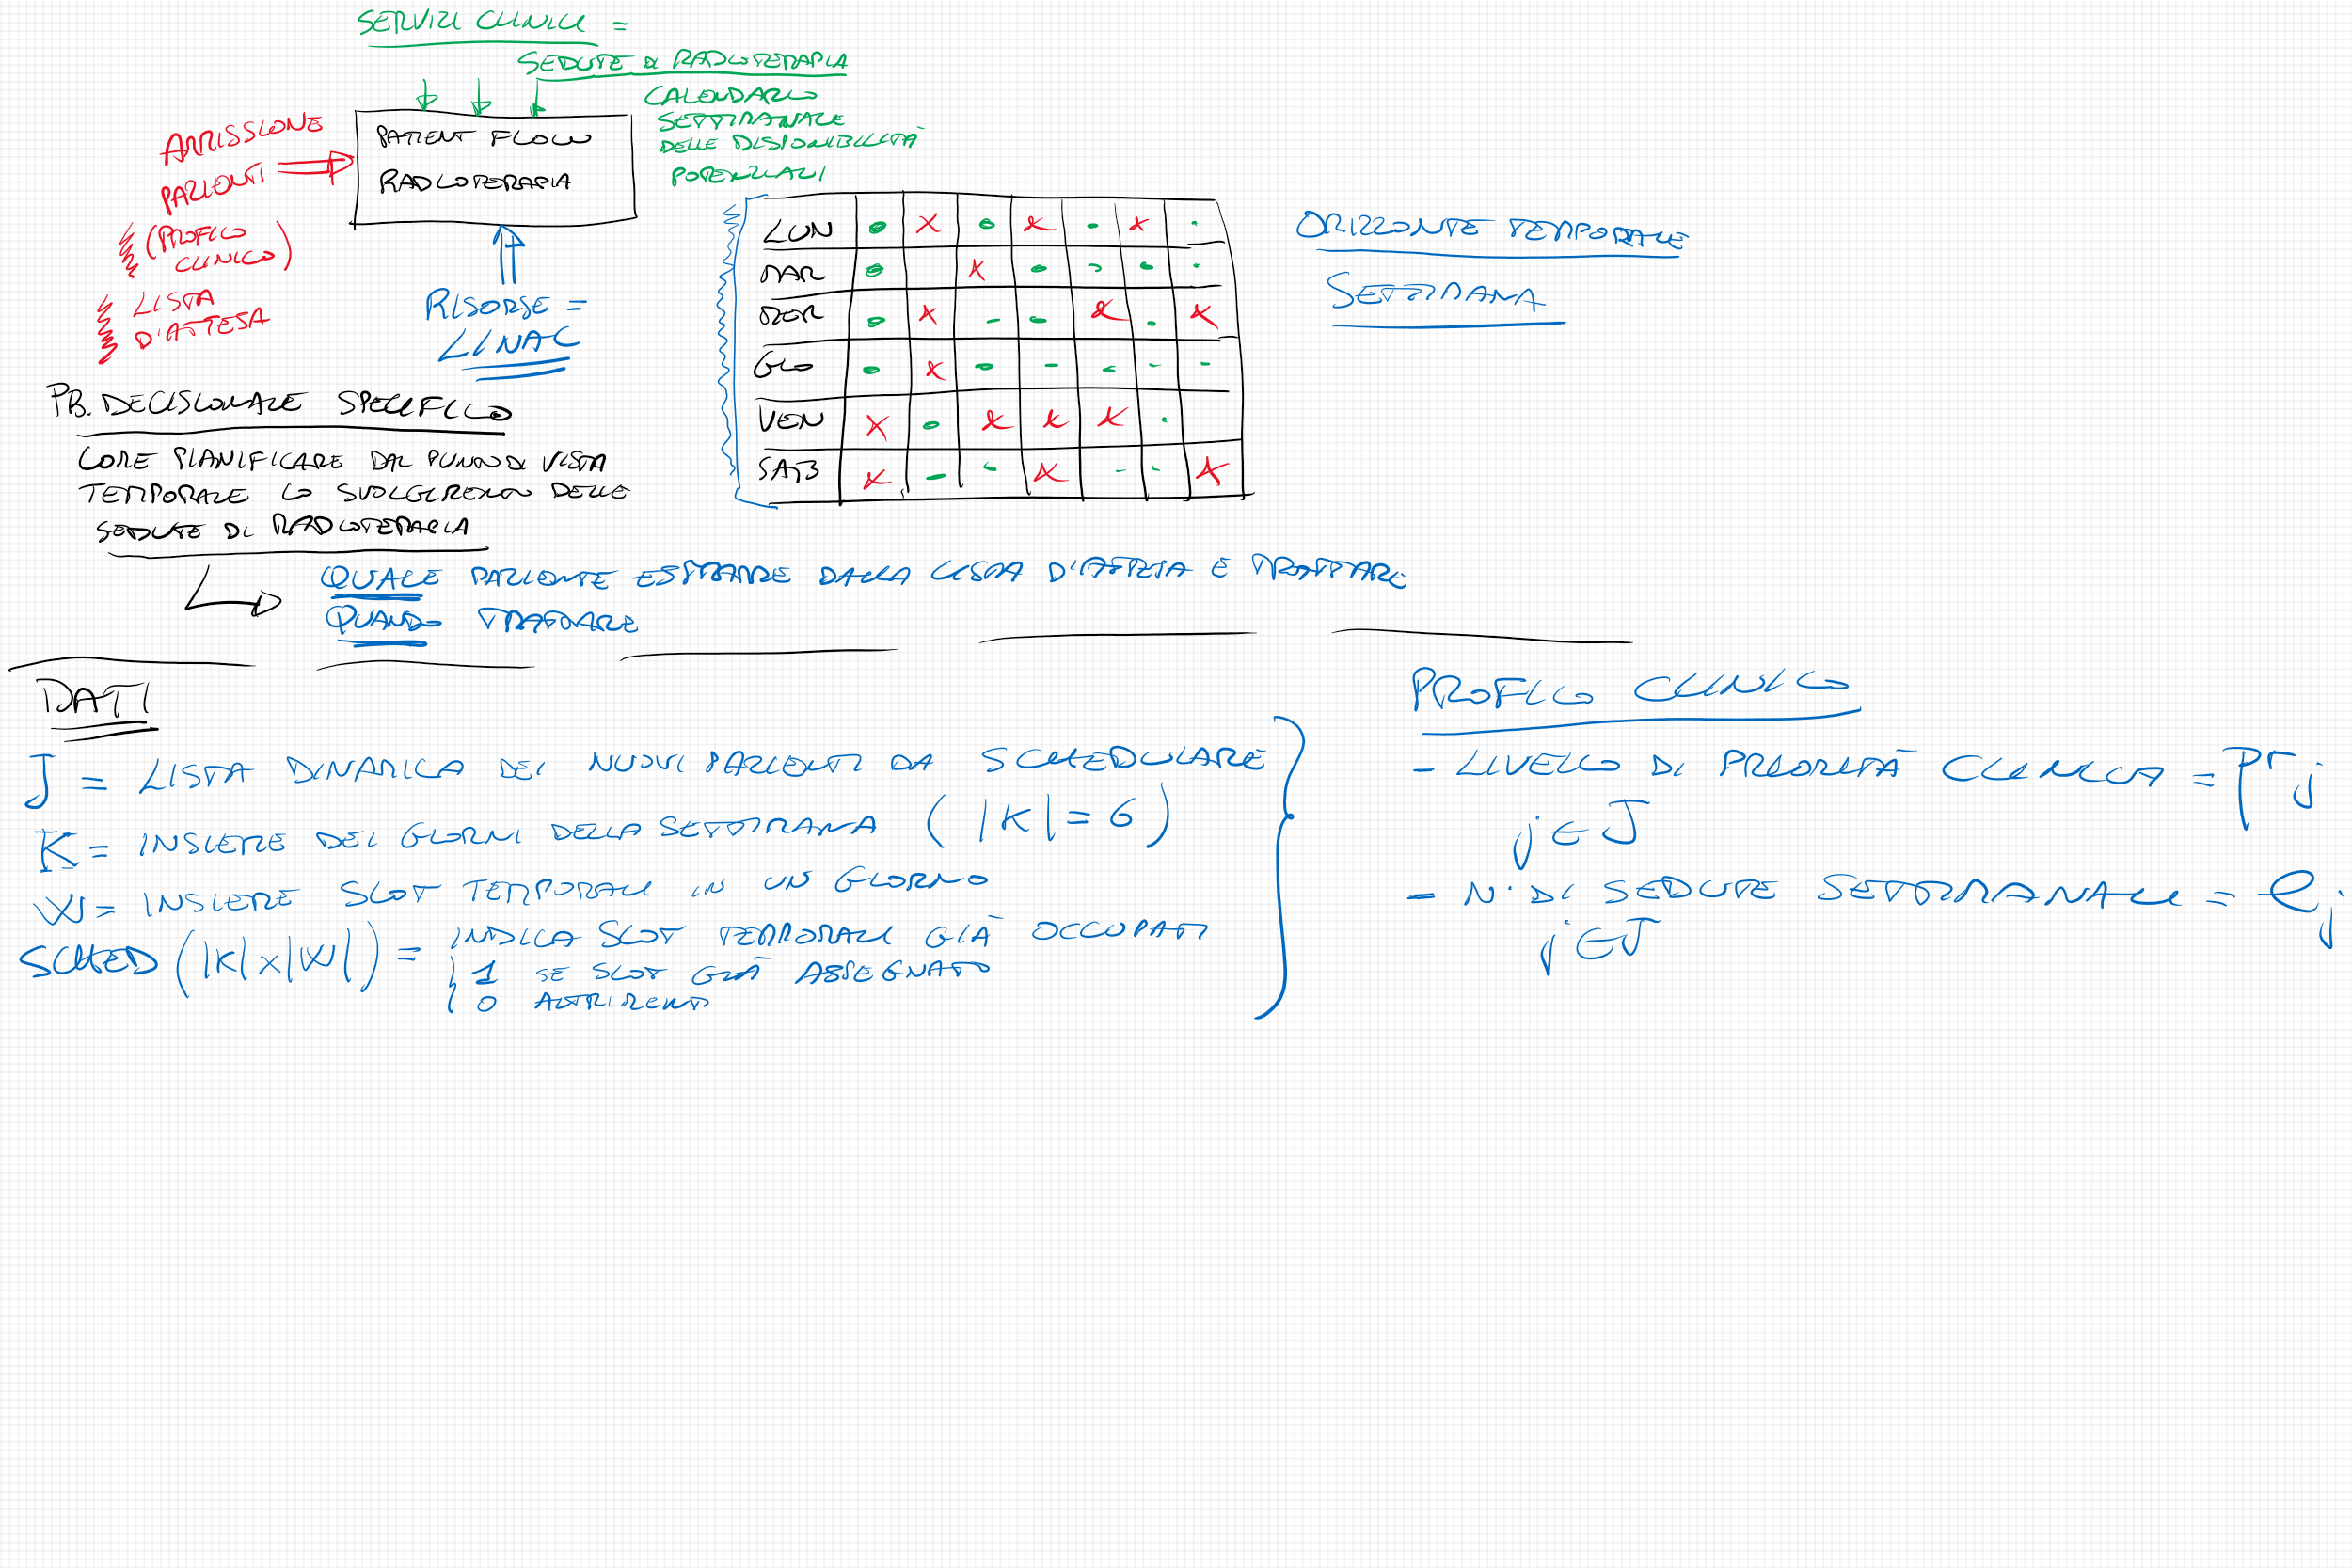 SERVIZI CLINICI =
SEDUTE DI RADIOTERAPIA
CALENDARIO
SETTIMANALE
DELLE DISPONIBILITÀ
POTENZIALI
AMMISSIONE
PAZIENTI
(PROFILO
CLINICO)
LISTA
D'ATTESA
PATIENT FLOW
RADIOTERAPIA
RISORSE =
LINAC
LUN
MAR
MER
GIO
VEN
SAB
ORIZZONTE TEMPORALE
SETTIMANA
PB. DECISIONALE SPECIFICO
COME PIANIFICARE DAL PUNTO DI VISTA
TEMPORALE LO SVOLGIMENTO DELLE
SEDUTE DI RADIOTERAPIA
QUALE PAZIENTE ESTRARRE DALLA LISTA D'ATTESA E TRATTARE
QUANDO TRATTARE
DATI
J = LISTA DINAMICA DEI NUOVI PAZIENTI DA SCHEDULARE
K = INSIEME DEI GIORNI DELLA SETTIMANA (|K| = 6)
W = INSIEME SLOT TEMPORALI IN UN GIORNO
SCHED (|K| x |W|) = INDICA SLOT TEMPORALI GIÀ OCCUPATI
1 SE SLOT GIÀ ASSEGNATO
0 ALTRIMENTI
PROFILO CLINICO
- LIVELLO DI PRIORITÀ CLINICA = Pr j
j ∈ J
- N. DI SEDUTE SETTIMANALI = e j
j ∈ J